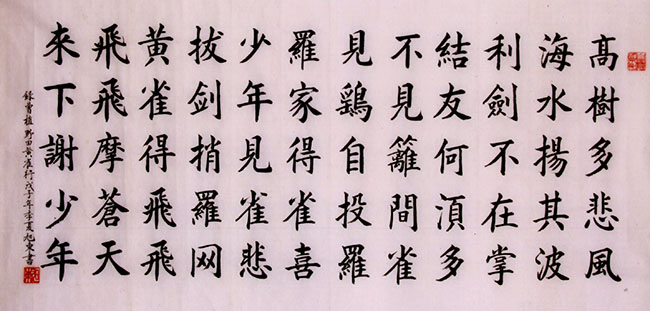 高樹多悲風
海水揚其波
利劍不在掌
結友何湏多
不見籬間雀
見鷄自投羅
羅家得雀喜
少年見雀悲
拔剑捎羅网
黄雀得飛飛
飛飛摩蒼天
來下謝少年
錄曹植野田黄雀行戊子年季夏旭東書